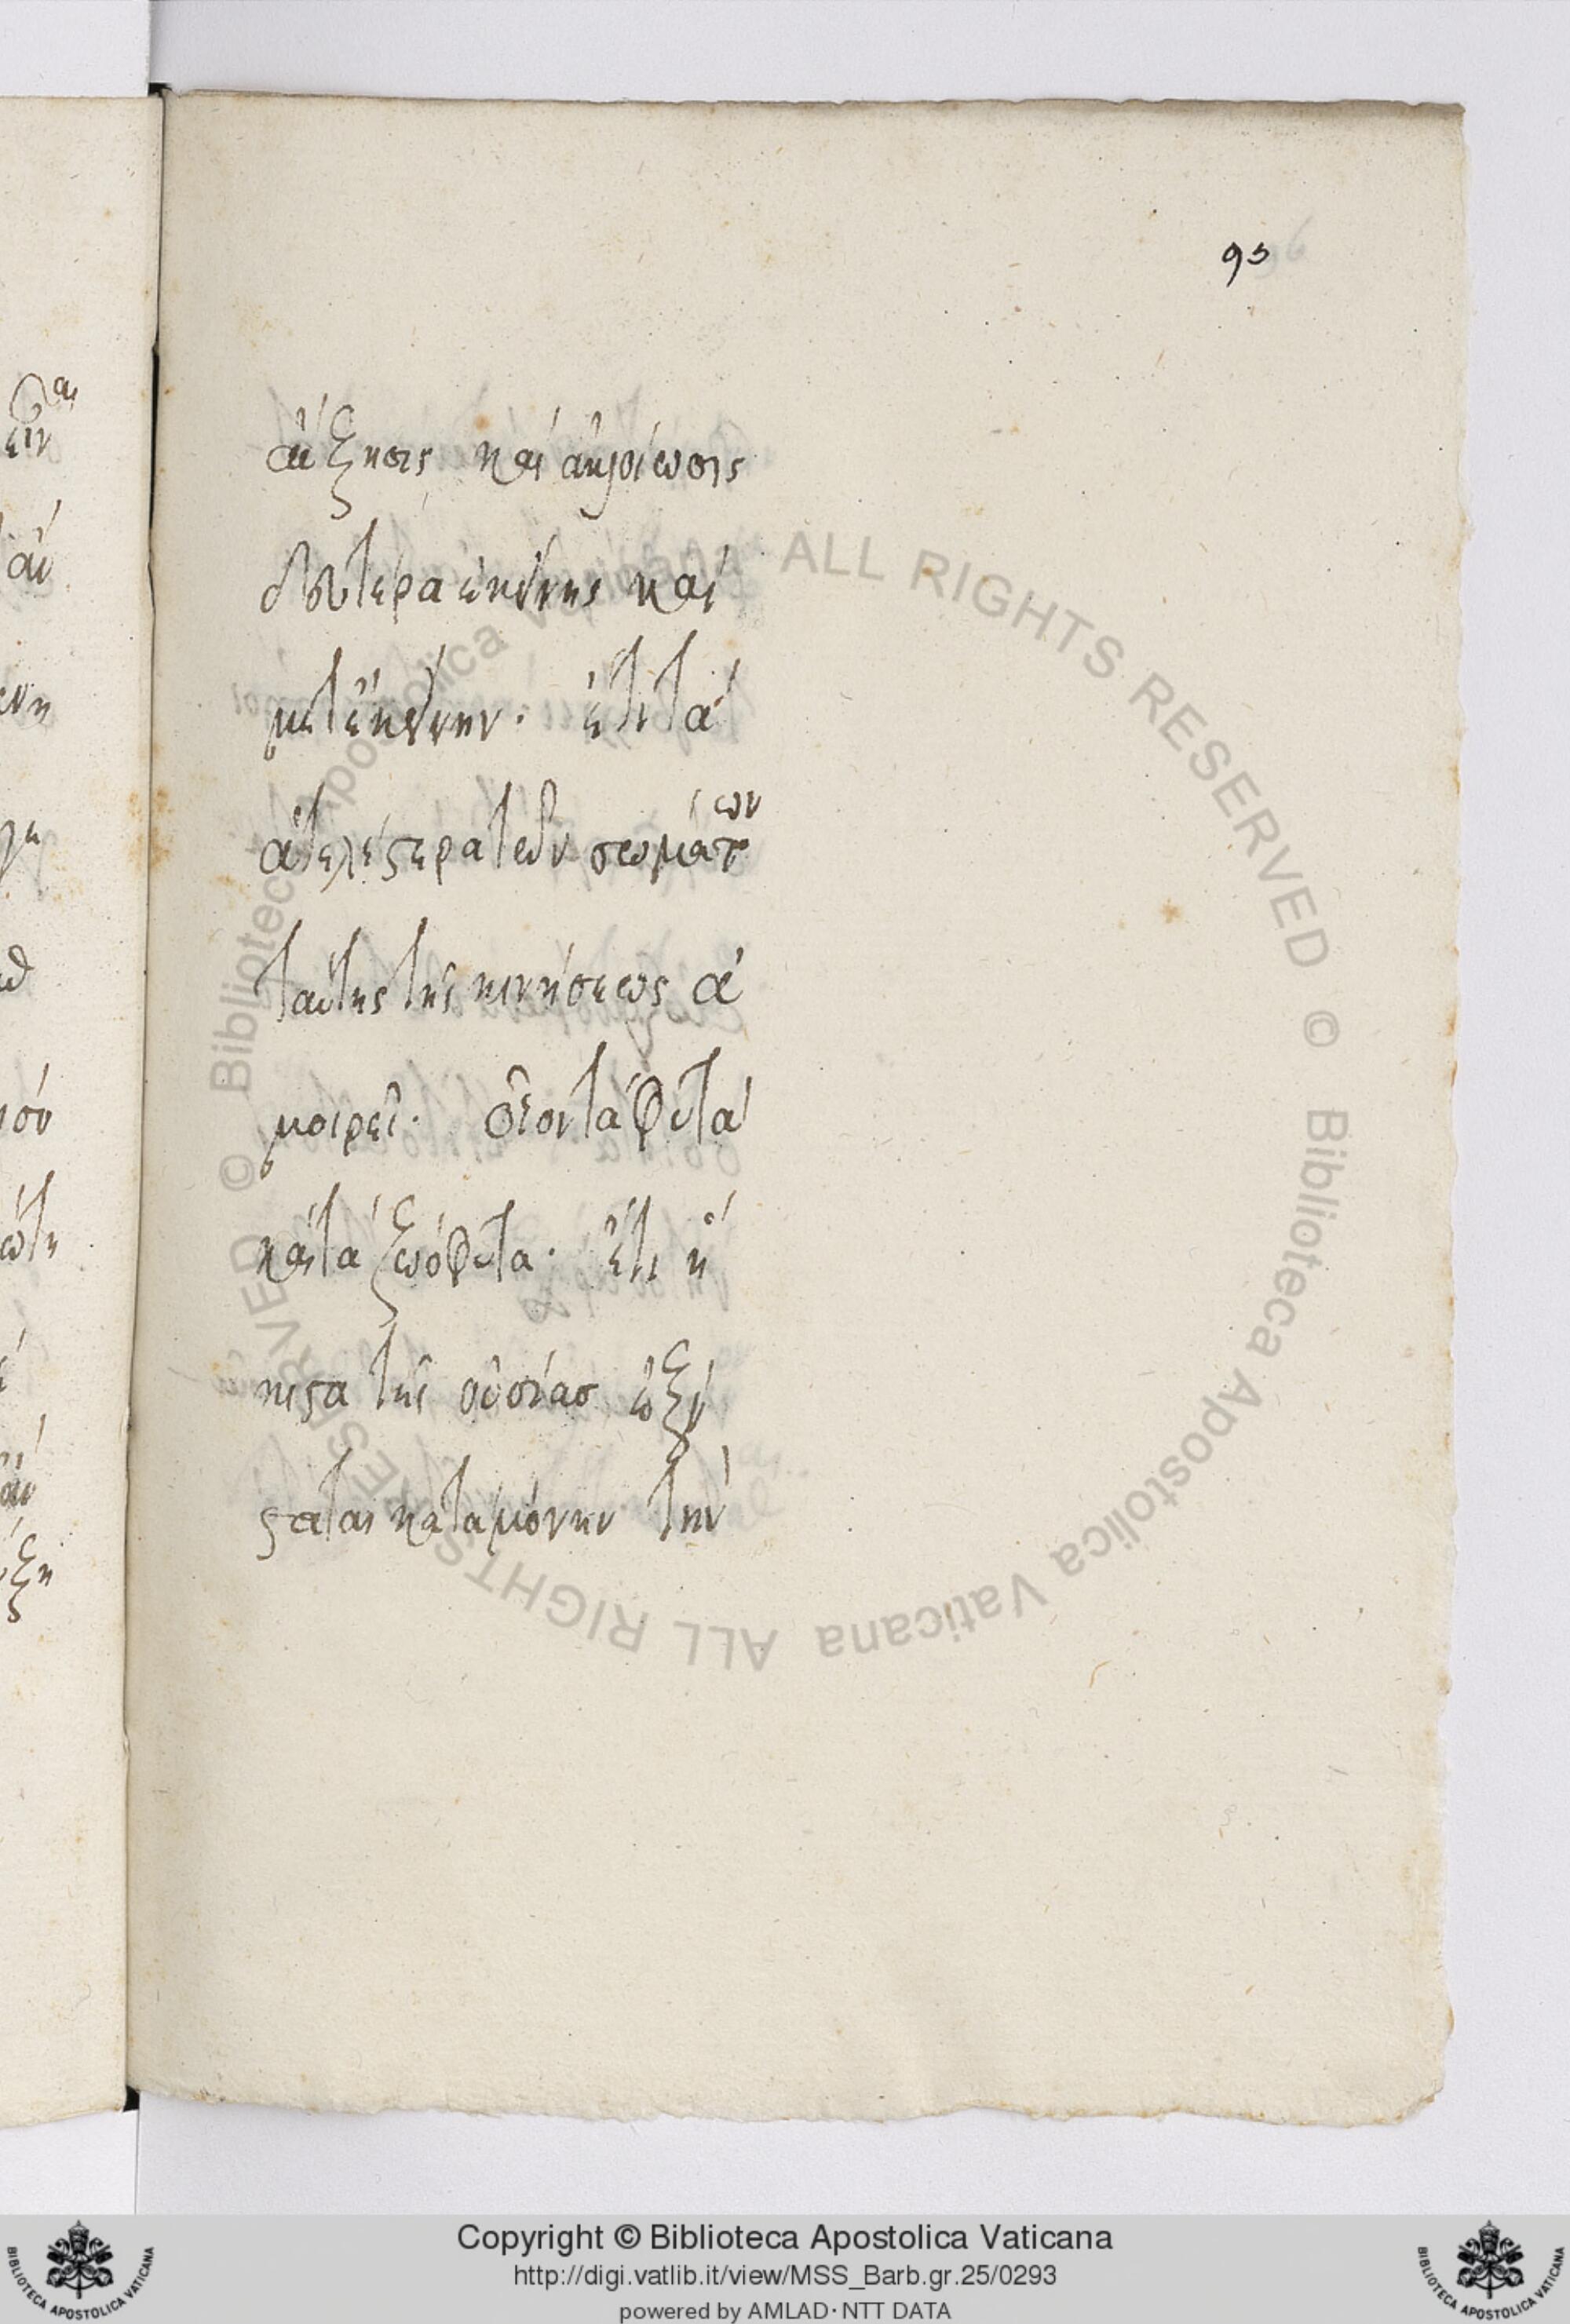 95
αὔξησις καὶ ἀλλοίωσις
δευτέρα ἐκείνης καὶ
μετ' ἐκείνην. ἔτι τὰ
ἀτελέστερα τῶν σωμάτων
ταύτης τῆς κινήσεως ἀ
μοιρεῖ. οἷον τὰ φυτὰ
καὶ τὰ ζωόφυτα. ἔτι ἥ
κιστα τῆς οὐσίας ἐξί
σταται κατὰ μόνην τὴν
Copyright © Biblioteca Apostolica Vaticana
http://digi.vatlib.it/view/MSS_Barb.gr.25/0293
powered by AMLAD·NTT DATA
© Biblioteca Apostolica Vaticana ALL RIGHTS RESERVED © Biblioteca Apostolica Vaticana ALL RIGHTS RESERVED
BIBLIOTECA APOSTOLICA VATICANA
BIBLIOTECA APOSTOLICA VATICANA